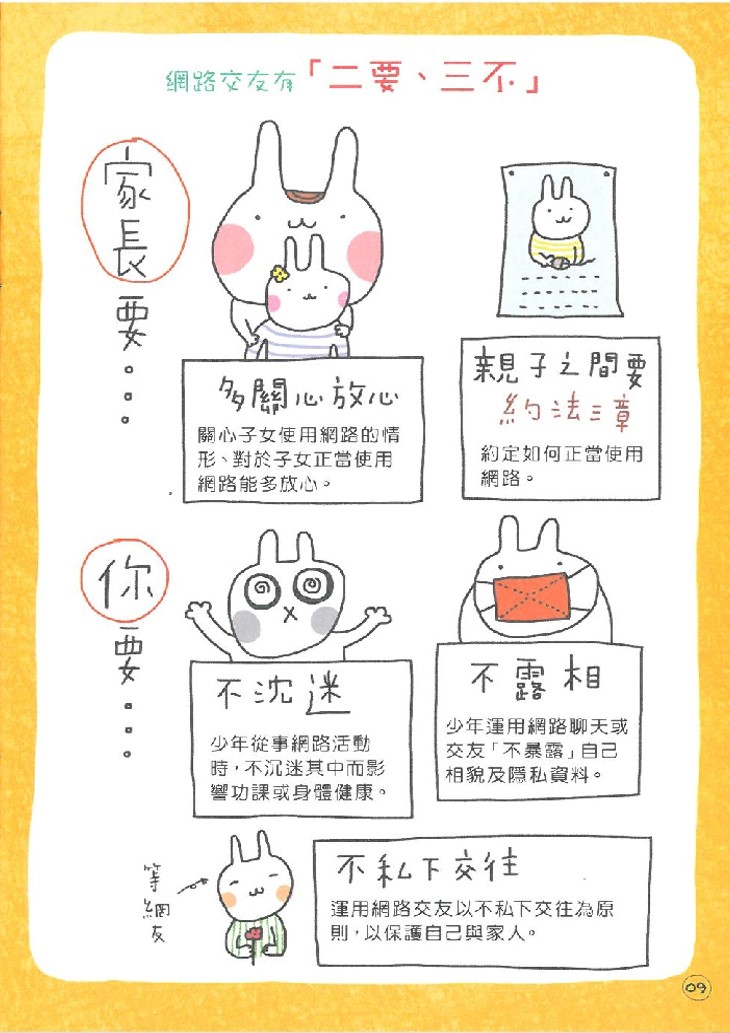 網路交友有「二要、三不」
家長要...
多關心放心
關心子女使用網路的情
形、對於子女正當使用
網路能多放心。
親子之間要
約法三章
約定如何正當使用
網路。
你要...
不沈迷
少年從事網路活動
時,不沉迷其中而影
響功課或身體健康。
不露相
少年運用網路聊天或
交友「不暴露」自己
相貌及隱私資料。
等網友
不私下交往
運用網路交友以不私下交往為原
則,以保護自己與家人。
09